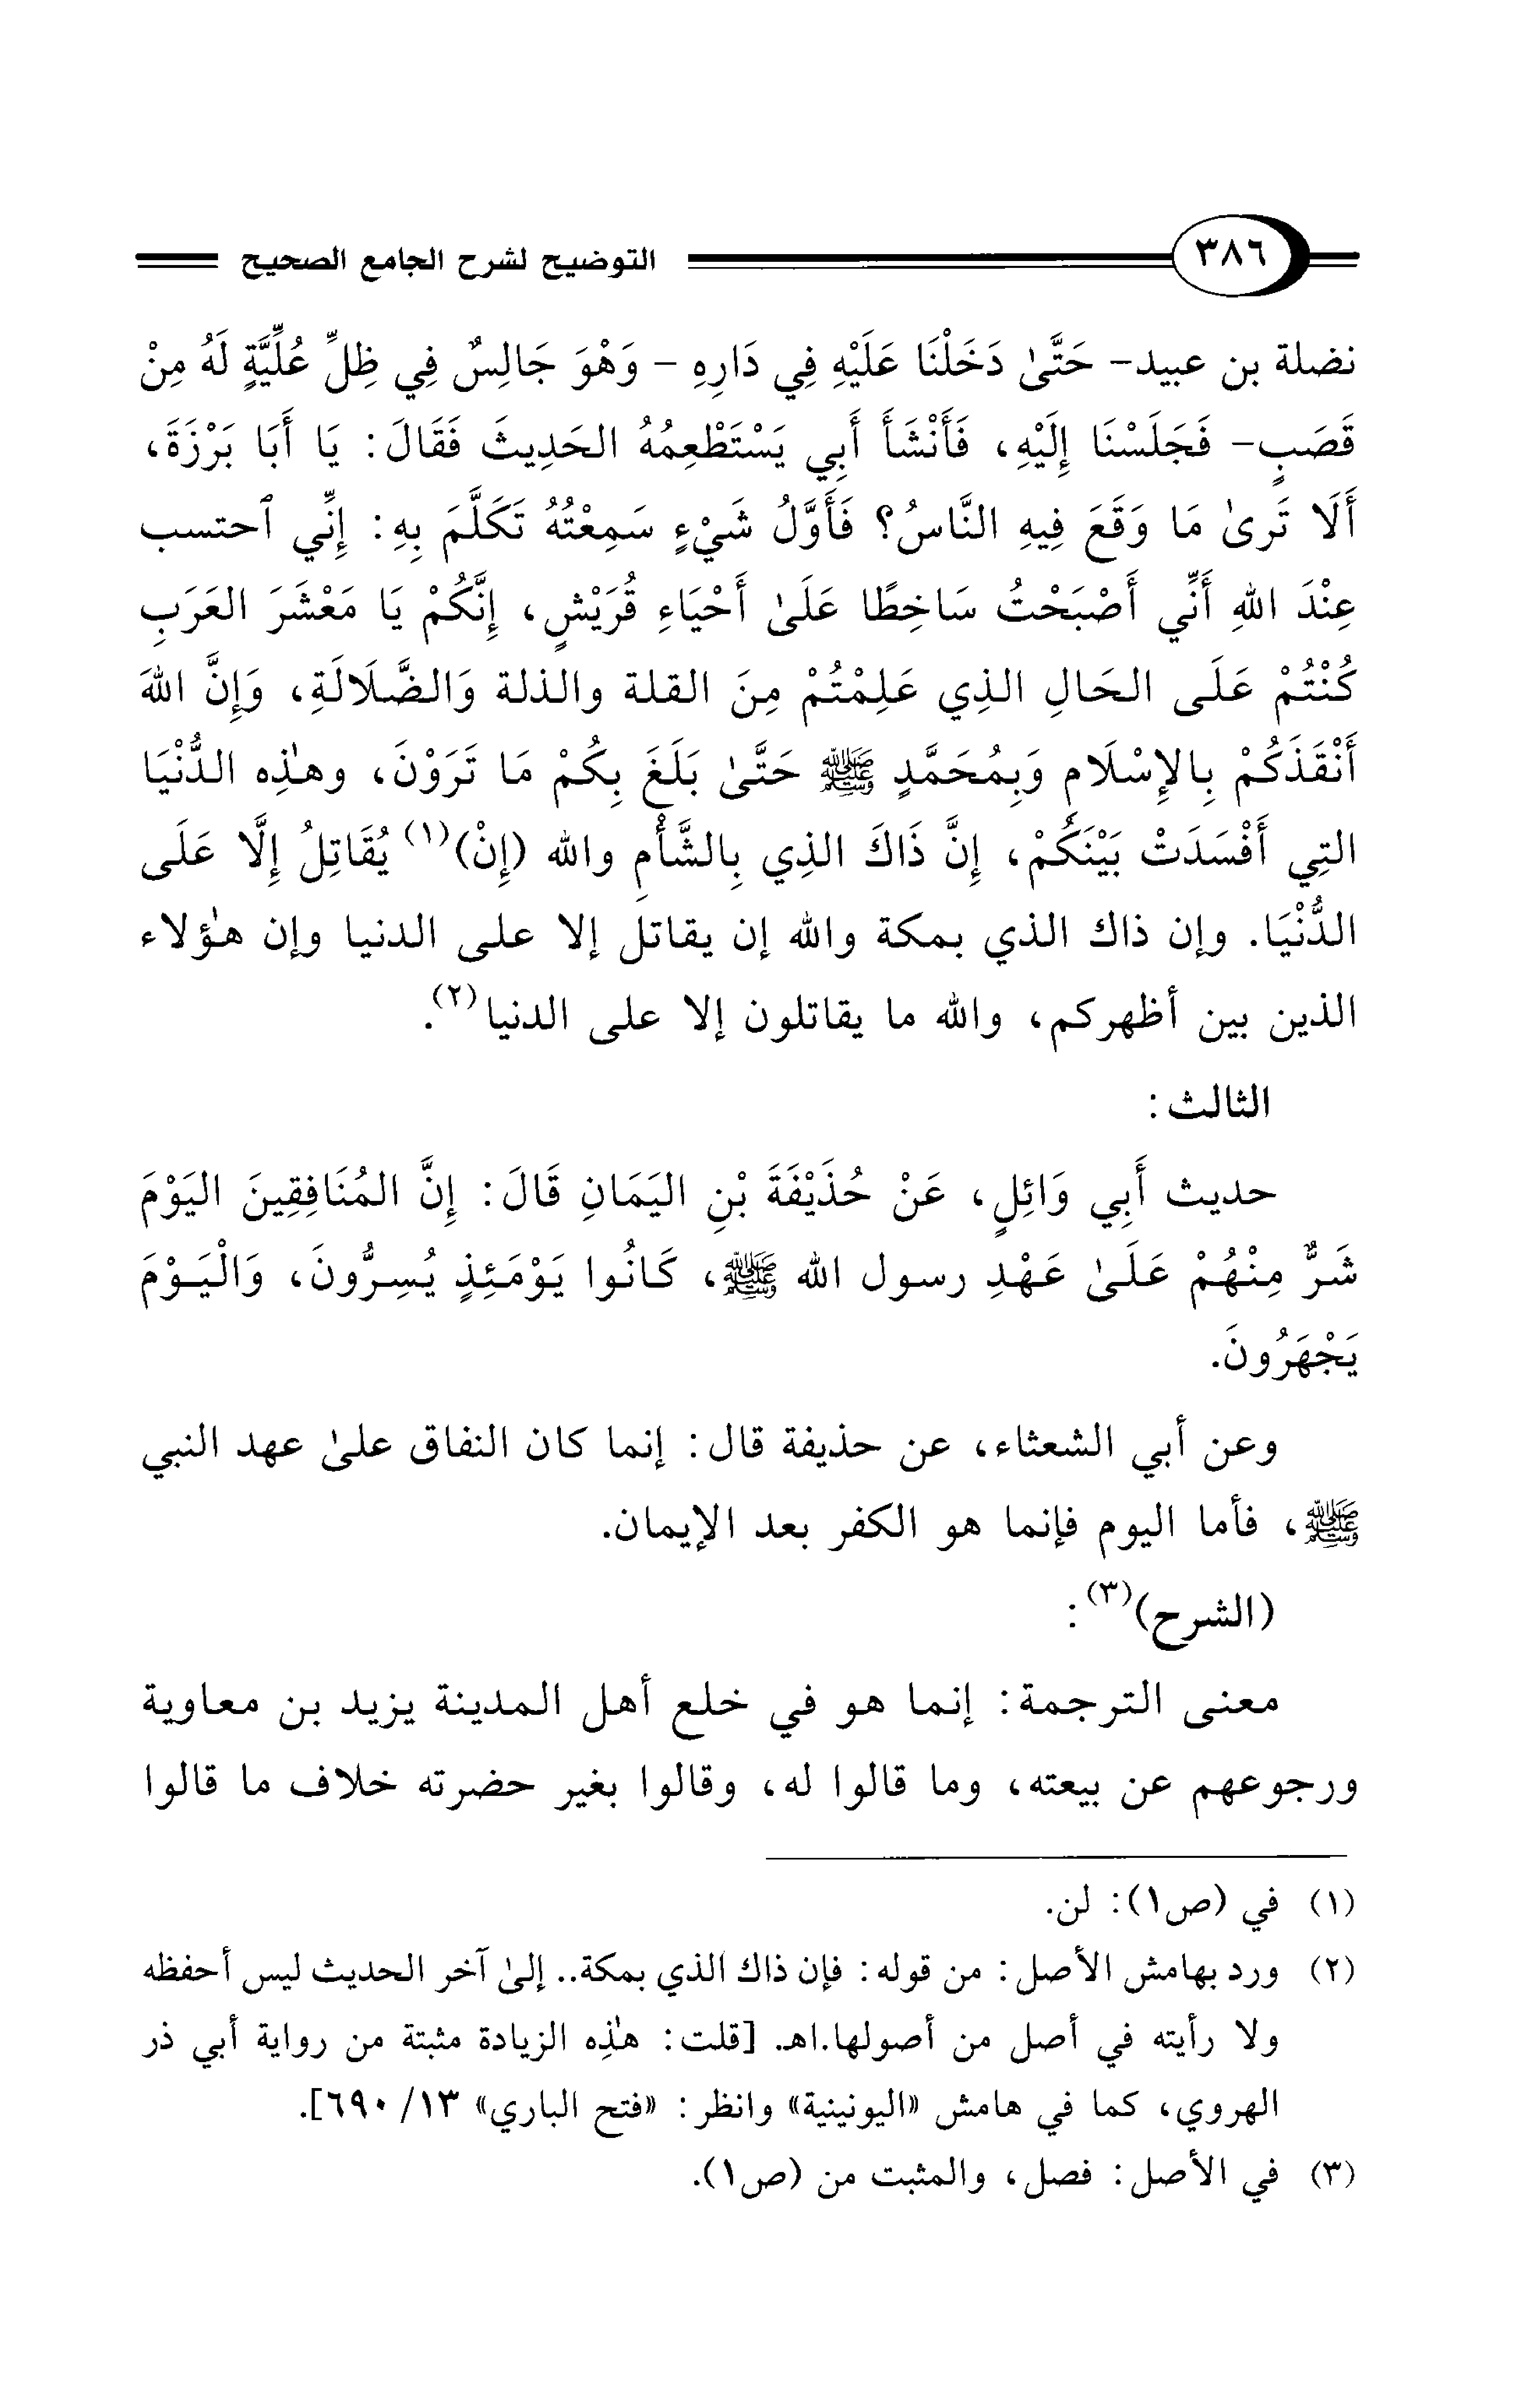 ٣٨٦ التوضيح لشرح الجامع الصحيح
نضلة بن عبيد- حَتَّىٰ دَخَلْنَا عَلَيْهِ فِي دَارِهِ - وَهْوَ جَالِسٌ فِي ظِلِّ عُلِّيَّةٍ لَهُ مِنْ
قَصَبٍ- فَجَلَسْنَا إِلَيْهِ، فَأَنْشَأَ أَبِي يَسْتَطْعِمُهُ الحَدِيثَ فَقَالَ: يَا أَبَا بَرْزَةَ،
أَلَا تَرىٰ مَا وَقَعَ فِيهِ النَّاسُ؟ فَأَوَّلُ شَيْءٍ سَمِعْتُهُ تَكَلَّمَ بِهِ: إِنِّي ٱحتسب
عِنْدَ اللهِ أَنِّي أَصْبَحْتُ سَاخِطًا عَلَىٰ أَحْيَاءِ قُرَيْشٍ، إِنَّكُمْ يَا مَعْشَرَ العَرَبِ
كُنْتُمْ عَلَى الحَالِ الذِي عَلِمْتُمْ مِنَ القلة والذلة وَالضَّلَالَةِ، وَإِنَّ اللهَ
أَنْقَذَكُمْ بِالإِسْلَامِ وَبِمُحَمَّدٍ ﷺ حَتَّىٰ بَلَغَ بِكُمْ مَا تَرَوْنَ، وهٰذِه الدُّنْيَا
التِي أَفْسَدَتْ بَيْنَكُمْ، إِنَّ ذَاكَ الذِي بِالشَّأْمِ والله (إِنْ)(١) يُقَاتِلُ إِلَّا عَلَى
الدُّنْيَا. وإن ذاك الذي بمكة والله إن يقاتل إلا على الدنيا وإن هٰؤلاء
الذين بين أظهركم، والله ما يقاتلون إلا على الدنيا(٢).
الثالث:
حديث أَبِي وَائِلٍ، عَنْ حُذَيْفَةَ بْنِ اليَمَانِ قَالَ: إِنَّ المُنَافِقِينَ اليَوْمَ
شَرٌّ مِنْهُمْ عَلَىٰ عَهْدِ رسول الله ﷺ، كَانُوا يَوْمَئِذٍ يُسِرُّونَ، وَالْيَوْمَ
يَجْهَرُونَ.
وعن أبي الشعثاء، عن حذيفة قال: إنما كان النفاق علىٰ عهد النبي
ﷺ، فأما اليوم فإنما هو الكفر بعد الإيمان.
(الشرح)(٣):
معنى الترجمة: إنما هو في خلع أهل المدينة يزيد بن معاوية
ورجوعهم عن بيعته، وما قالوا له، وقالوا بغير حضرته خلاف ما قالوا
(١) في (ص١): لن.
(٢) ورد بهامش الأصل: من قوله: فإن ذاك الذي بمكة.. إلىٰ آخر الحديث ليس أحفظه
ولا رأيته في أصل من أصولها.اهـ. [قلت: هٰذِه الزيادة مثبتة من رواية أبي ذر
الهروي، كما في هامش «اليونينية» وانظر: «فتح الباري» ١٣/ ٦٩٠].
(٣) في الأصل: فصل، والمثبت من (ص١).